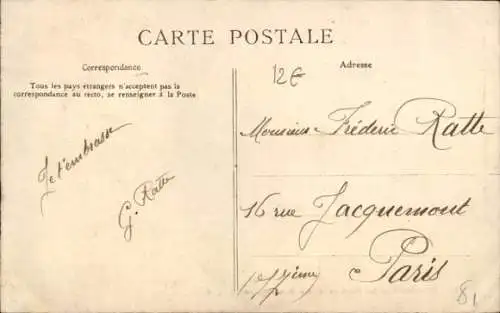 CARTE POSTALE
Correspondance
Tous les pays étrangers n'acceptent pas la
correspondance au recto, se renseigner à la Poste
Je t'embrasse
G. Ratte
12€
Adresse
Monsieur Fréderic Ratte
16 rue Jacquemont
Paris
81